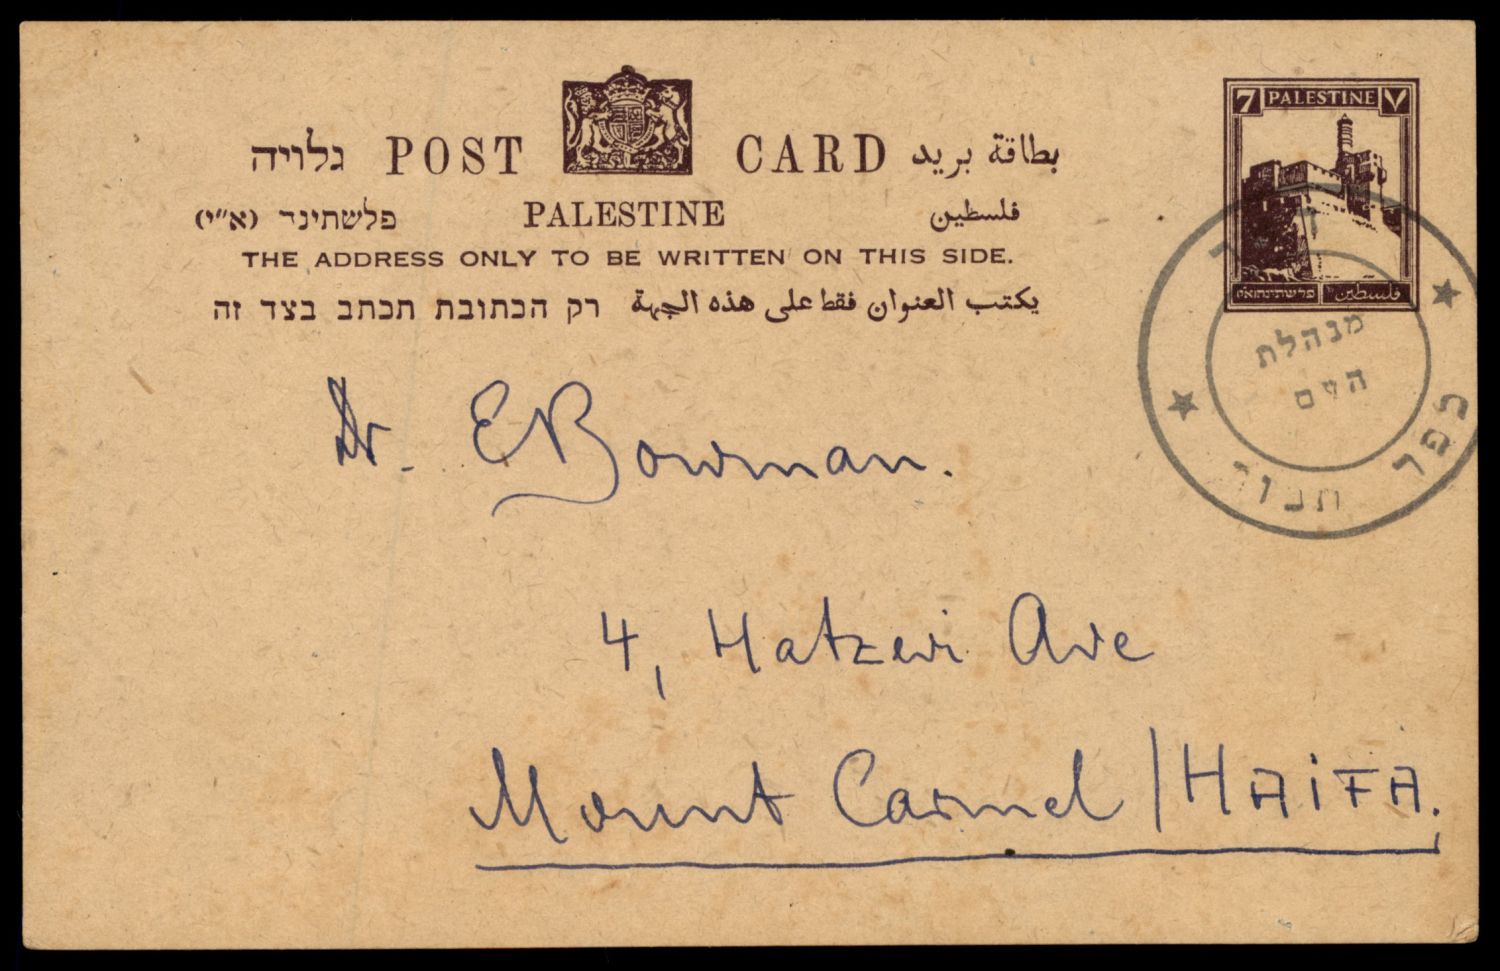 גלויה POST CARD بطاقة بريد
פלשתינה (א״י) PALESTINE فلسطين
THE ADDRESS ONLY TO BE WRITTEN ON THIS SIDE.
רק הכתובת תכתב בצד זה يكتب العنوان فقط على هذه الجهة
7 PALESTINE ٧
פלשתינה(א״י) فلسطين
מנהלת
העם
כפר תבור
Dr. E Bowman.
4, Hatzevi Ave
Mount Carmel / HAIFA.